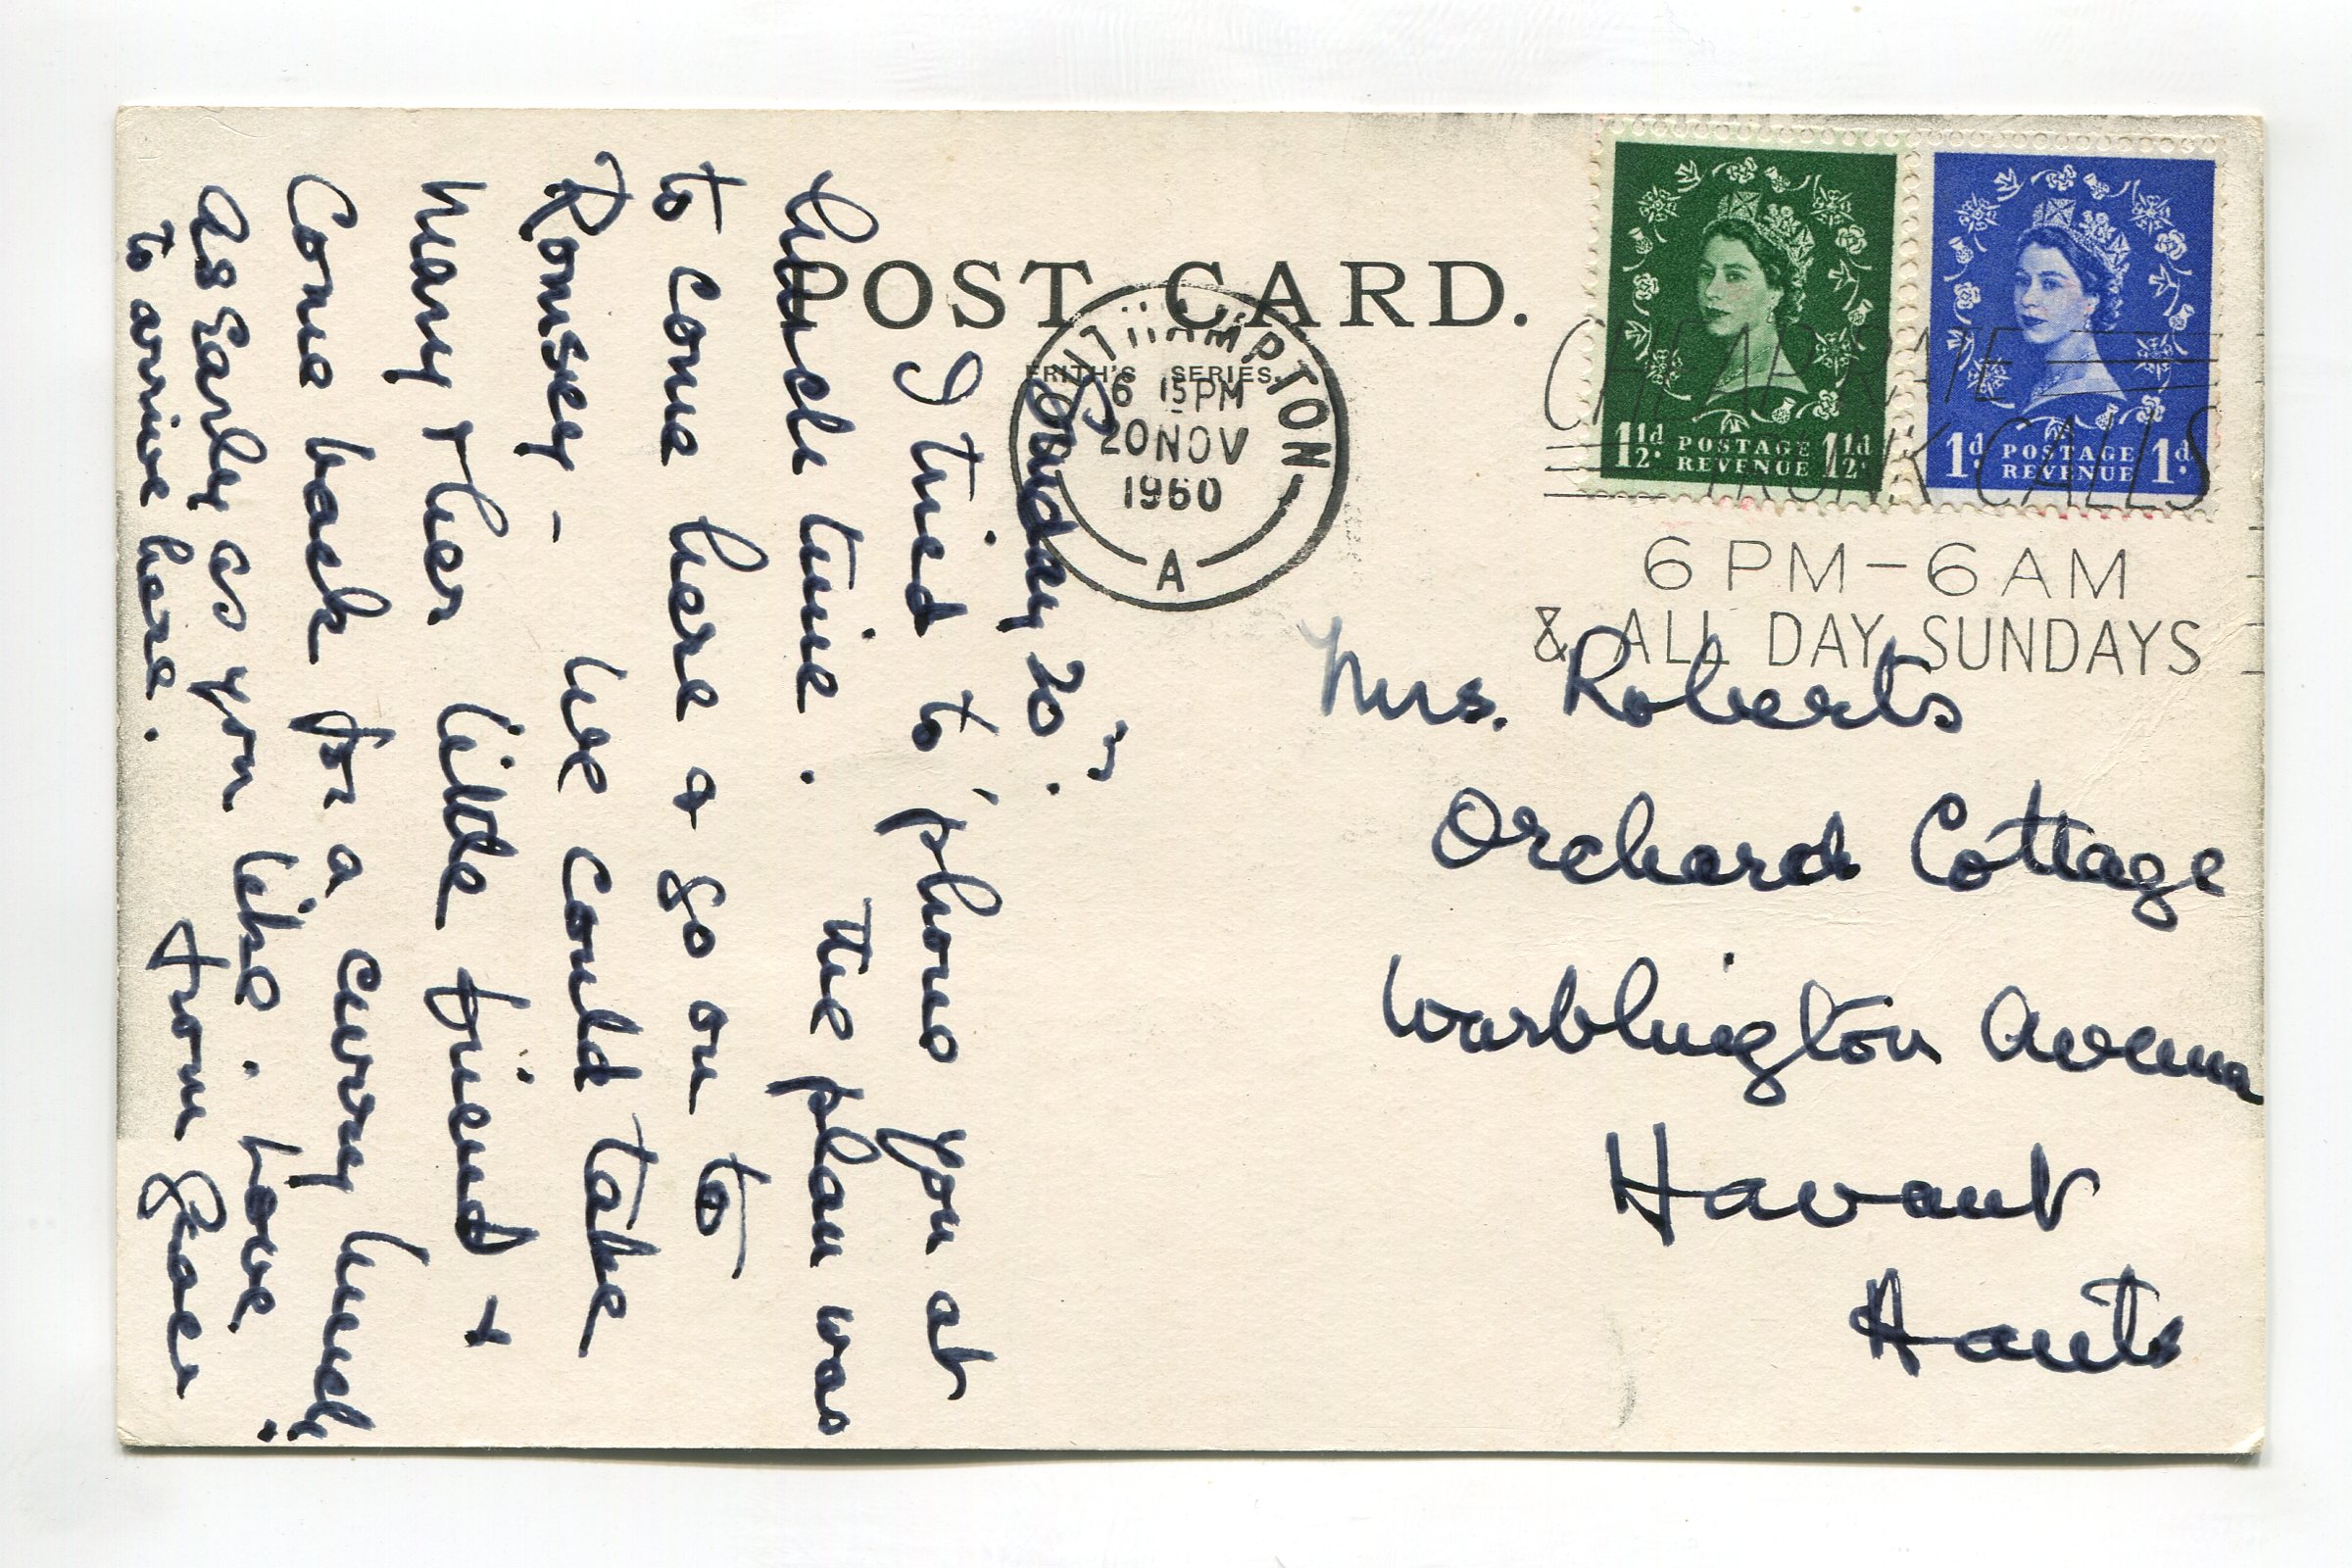 POST CARD.
FRITH'S SERIES.
SOUTHAMPTON
6 15 PM
20 NOV
1960
A
1½d POSTAGE REVENUE 1½d
1d POSTAGE REVENUE 1d
CHEAP RATE
TRUNK CALLS
6 PM - 6 AM
& ALL DAY SUNDAYS
Sunday 20th.
I tried to 'phone you at
lunch time. The plan was
to come here & go on to
Romsey - We could take
Mary & her little friend &
Come back for a curry lunch.
as Early as you like. Love
to arrive here. from
Mrs. Roberts
Orchard Cottage
Warblington Avenue
Havant
Hants